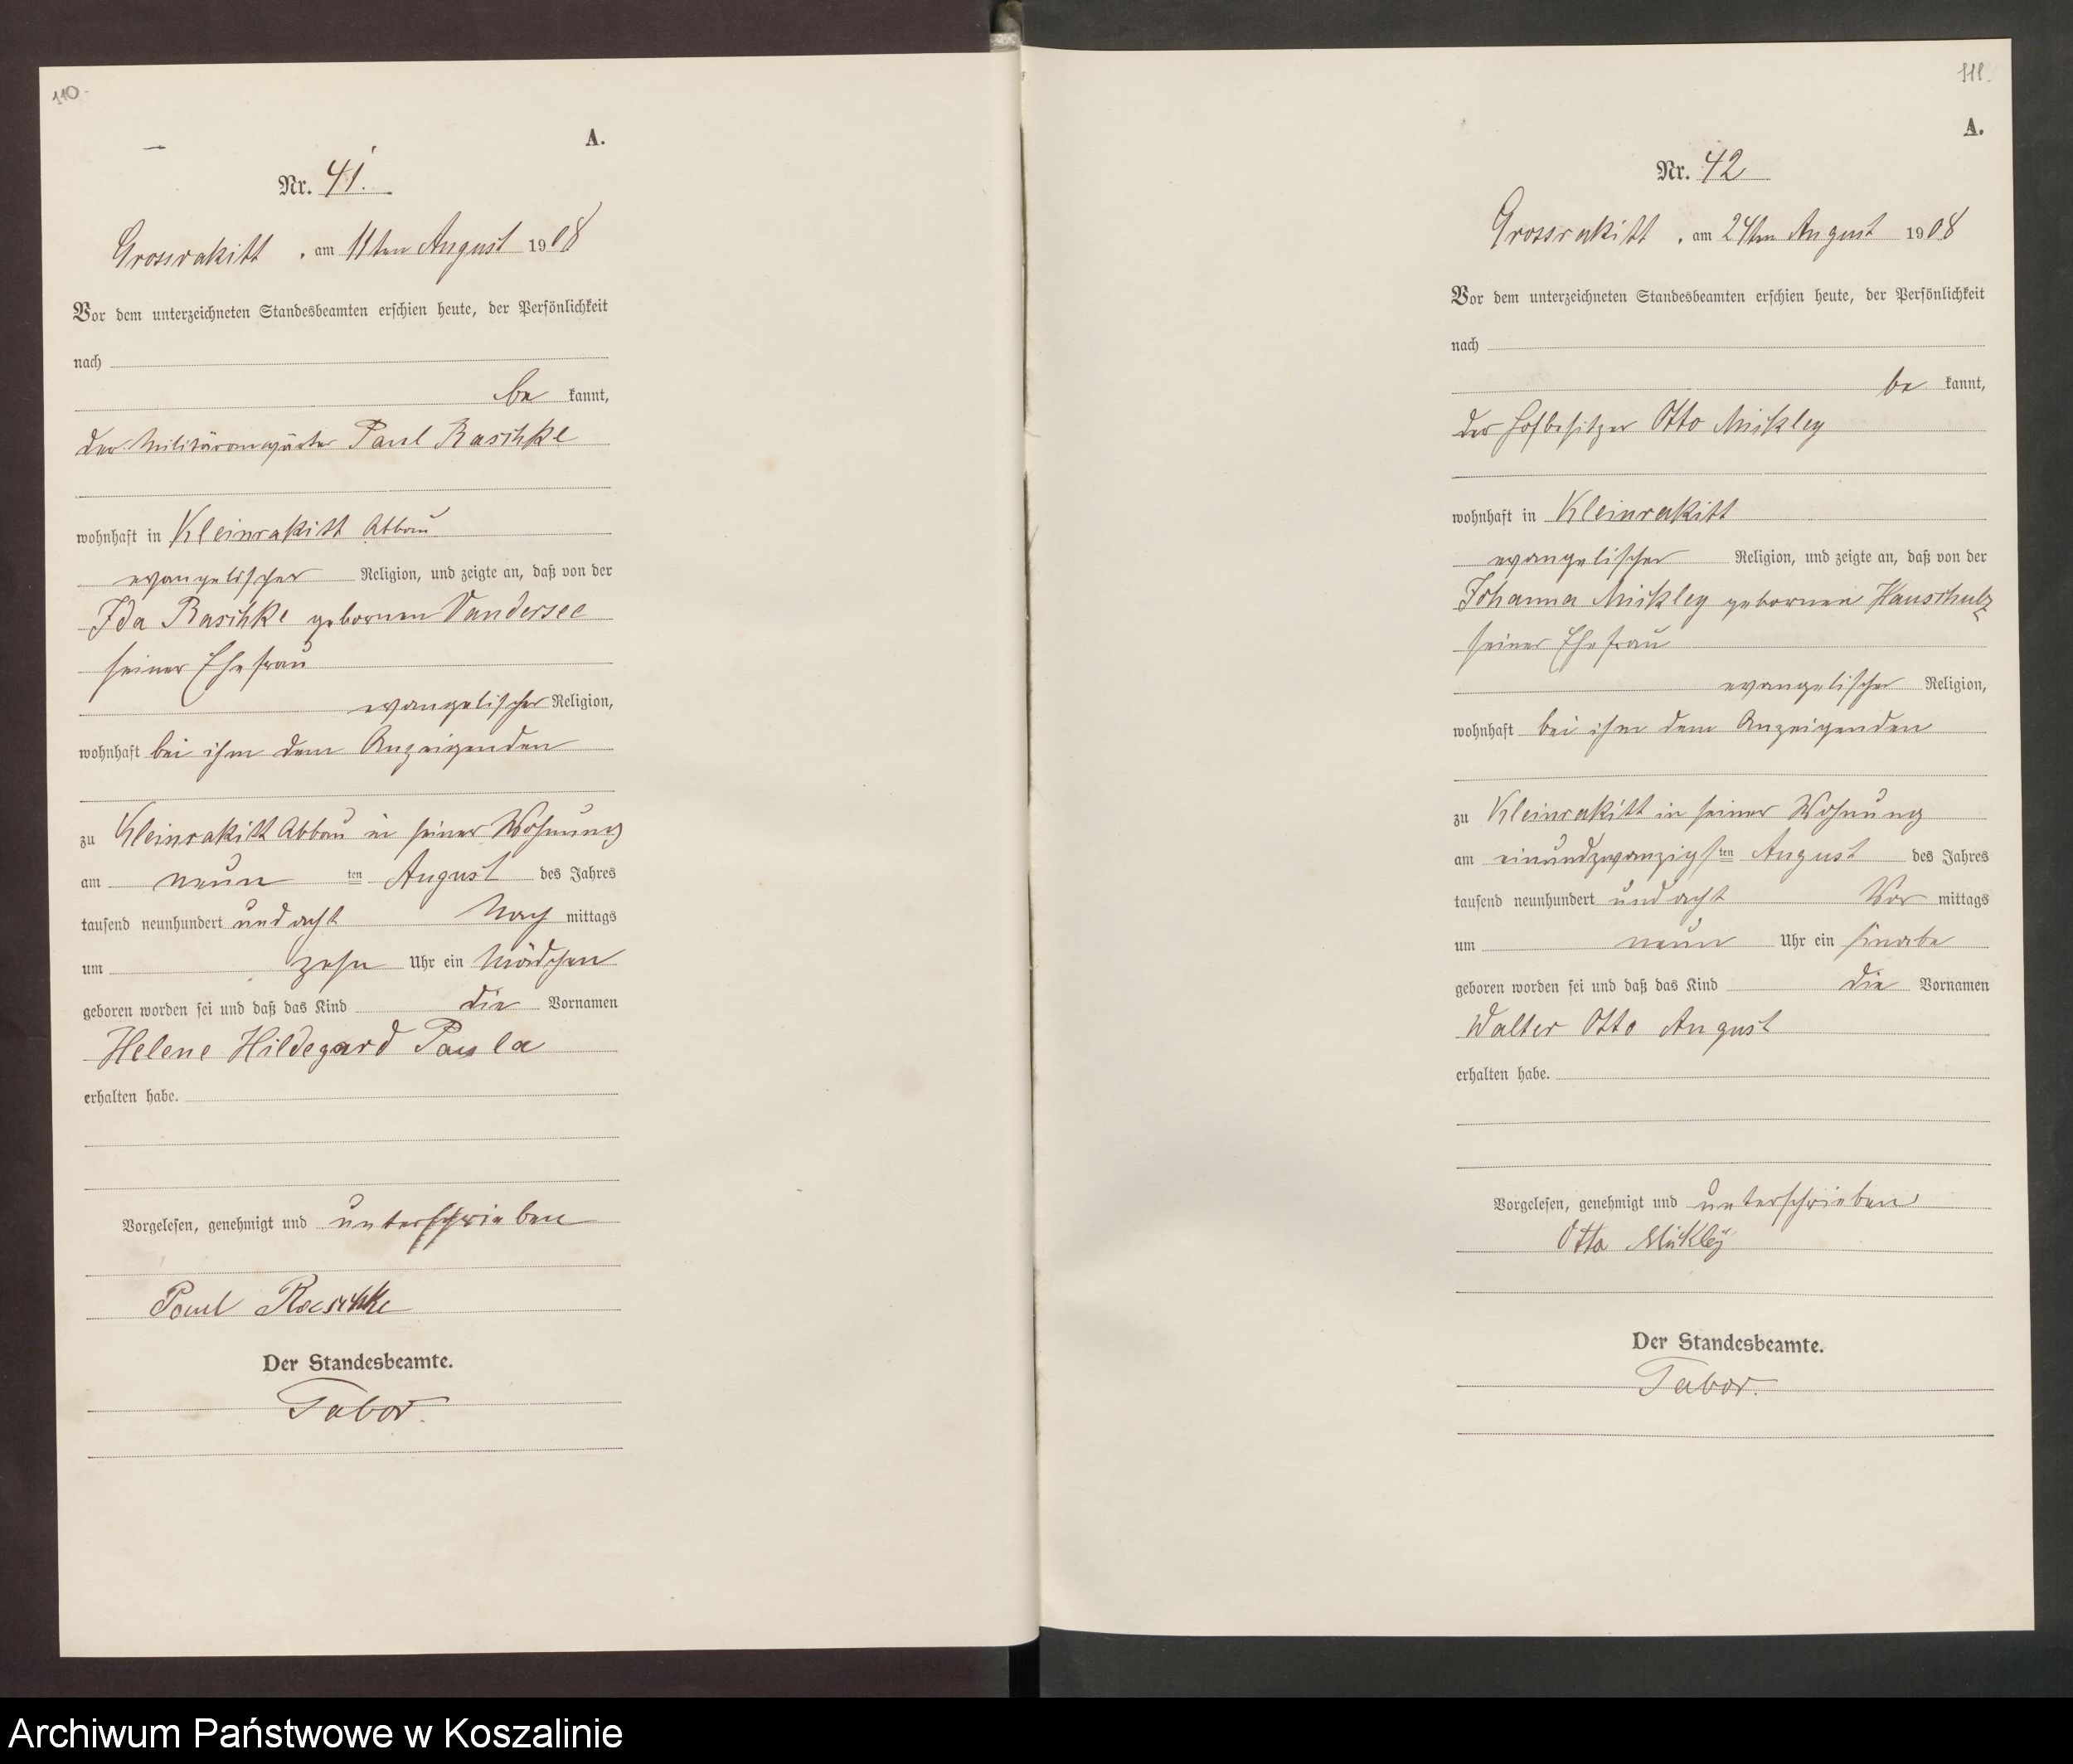 110.
A.
Nr. 41.
Grossrakitt, am 11ten August 1908
Vor dem unterzeichneten Standesbeamten erschien heute, der Persönlichkeit
nach
be kannt,
der Militäranwärter Paul Raschke
wohnhaft in Kleinrakitt Abbau
evangelischer Religion, und zeigte an, daß von der
Ida Raschke gebornen Vandersee
seiner Ehefrau
evangelischer Religion,
wohnhaft bei ihm dem Anzeigenden
zu Kleinrakitt Abbau in seiner Wohnung
am neun ten August des Jahres
tausend neunhundert und acht Nach mittags
um zehn Uhr ein Mädchen
geboren worden sei und daß das Kind die Vornamen
Helene Hildegard Paula
erhalten habe.
Vorgelesen, genehmigt und unterschrieben
Paul Raschke
Der Standesbeamte.
Tabor.
111.
A.
Nr. 42
Grossrakitt, am 24ten August 1908
Vor dem unterzeichneten Standesbeamten erschien heute, der Persönlichkeit
nach
be kannt,
der Hofbesitzer Otto Mickley
wohnhaft in Kleinrakitt
evangelischer Religion, und zeigte an, daß von der
Johanna Mickley gebornen Hauschulz
seiner Ehefrau
evangelischer Religion,
wohnhaft bei ihm dem Anzeigenden
zu Kleinrakitt in seiner Wohnung
am einundzwanzigs ten August des Jahres
tausend neunhundert und acht Vor mittags
um neun Uhr ein Knabe
geboren worden sei und daß das Kind die Vornamen
Walter Otto August
erhalten habe.
Vorgelesen, genehmigt und unterschrieben
Otto Mickley
Der Standesbeamte.
Tabor.
Archiwum Państwowe w Koszalinie